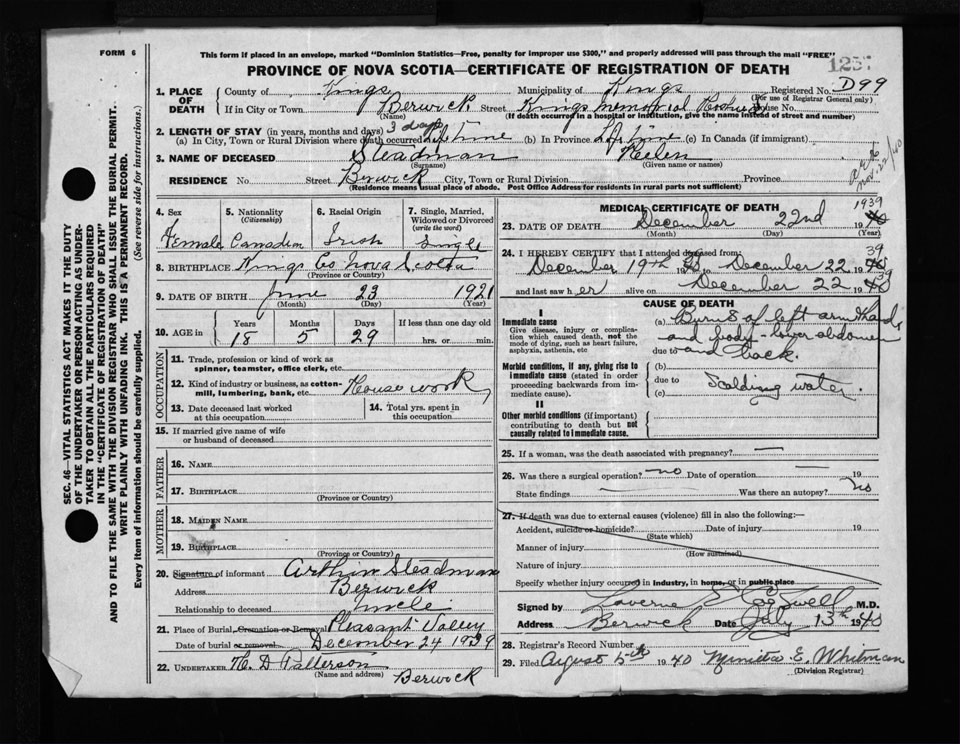 FORM 6
This form if placed in an envelope, marked "Dominion Statistics—Free, penalty for improper use $300," and properly addressed will pass through the mail "FREE"
1237
PROVINCE OF NOVA SCOTIA—CERTIFICATE OF REGISTRATION OF DEATH
1. PLACE OF DEATH County of Kings Municipality of Kings Registered No. D99
(For use of Registrar General only)
If in City or Town Berwick Street Kings Memorial Hospital House No.
(Name) (If death occurred in a hospital or institution, give the name instead of street and number)
2. LENGTH OF STAY (in years, months and days) 3 days
(a) In City, Town or Rural Division where death occurred Life time (b) In Province Life time (c) In Canada (if immigrant)
3. NAME OF DECEASED Steadman Helen
(Surname) (Given name or names)
RESIDENCE No. Street Berwick City, Town or Rural Division Province
(Residence means usual place of abode. Post Office Address for residents in rural parts not sufficient)
Nov. 22/40
4. Sex Female
5. Nationality (Citizenship) Canadian
6. Racial Origin Irish
7. Single, Married, Widowed or Divorced (write the word) Single
8. BIRTHPLACE Kings Co Nova Scotia
(Province or Country)
9. DATE OF BIRTH June 23 1921
(Month) (Day) (Year)
10. AGE in Years Months Days If less than one day old
18 5 29 hrs. or min.
OCCUPATION
11. Trade, profession or kind of work as spinner, teamster, office clerk, etc.
12. Kind of industry or business, as cotton-mill, lumbering, bank, etc. House work
13. Date deceased last worked at this occupation
14. Total yrs. spent in this occupation
15. If married give name of wife or husband of deceased
FATHER
16. NAME
17. BIRTHPLACE
(Province or Country)
MOTHER
18. MAIDEN NAME
19. BIRTHPLACE
(Province or Country)
20. Signature of informant Arthur Steadman
Address Berwick
Relationship to deceased Uncle
21. Place of Burial, Cremation or Removal Pleasant Valley
Date of burial or removal December 24 1939
22. UNDERTAKER H. D Patterson
(Name and address) Berwick
MEDICAL CERTIFICATE OF DEATH
23. DATE OF DEATH December 22nd 1939
(Month) (Day) (Year)
24. I HEREBY CERTIFY that I attended deceased from:
December 19th to December 22 39
and last saw her alive on December 22 39
CAUSE OF DEATH
I
Immediate cause
Give disease, injury or complication which caused death, not the mode of dying, such as heart failure, asphyxia, asthenia, etc
(a) Burns of left arm & hand,
and body - lower abdomen
due to and back.
Morbid conditions, if any, giving rise to immediate cause (stated in order proceeding backwards from immediate cause).
(b)
due to Scalding water.
(c)
II
Other morbid conditions (if important) contributing to death but not causally related to immediate cause.
25. If a woman, was the death associated with pregnancy? —
26. Was there a surgical operation? no Date of operation 19
State findings Was there an autopsy? no
27. If death was due to external causes (violence) fill in also the following:—
Accident, suicide or homicide? Date of injury 19
(State which)
Manner of injury
(How sustained)
Nature of injury
Specify whether injury occurred in industry, in home, or in public place
Signed by Laverne M.D.
Address Berwick Date July 13th 1940
28. Registrar's Record Number
29. Filed August 5th 1940 E. Whitman
(Division Registrar)
SEC. 46—VITAL STATISTICS ACT MAKES IT THE DUTY
OF THE UNDERTAKER OR PERSON ACTING AS UNDER-
TAKER TO OBTAIN ALL THE PARTICULARS REQUIRED
IN THE "CERTIFICATE OF REGISTRATION OF DEATH"
AND TO FILE THE SAME WITH THE DIVISION REGISTRAR WHO SHALL ISSUE THE BURIAL PERMIT.
WRITE PLAINLY WITH UNFADING INK. THIS IS A PERMANENT RECORD.
Every item of information should be carefully supplied. (See reverse side for instructions.)